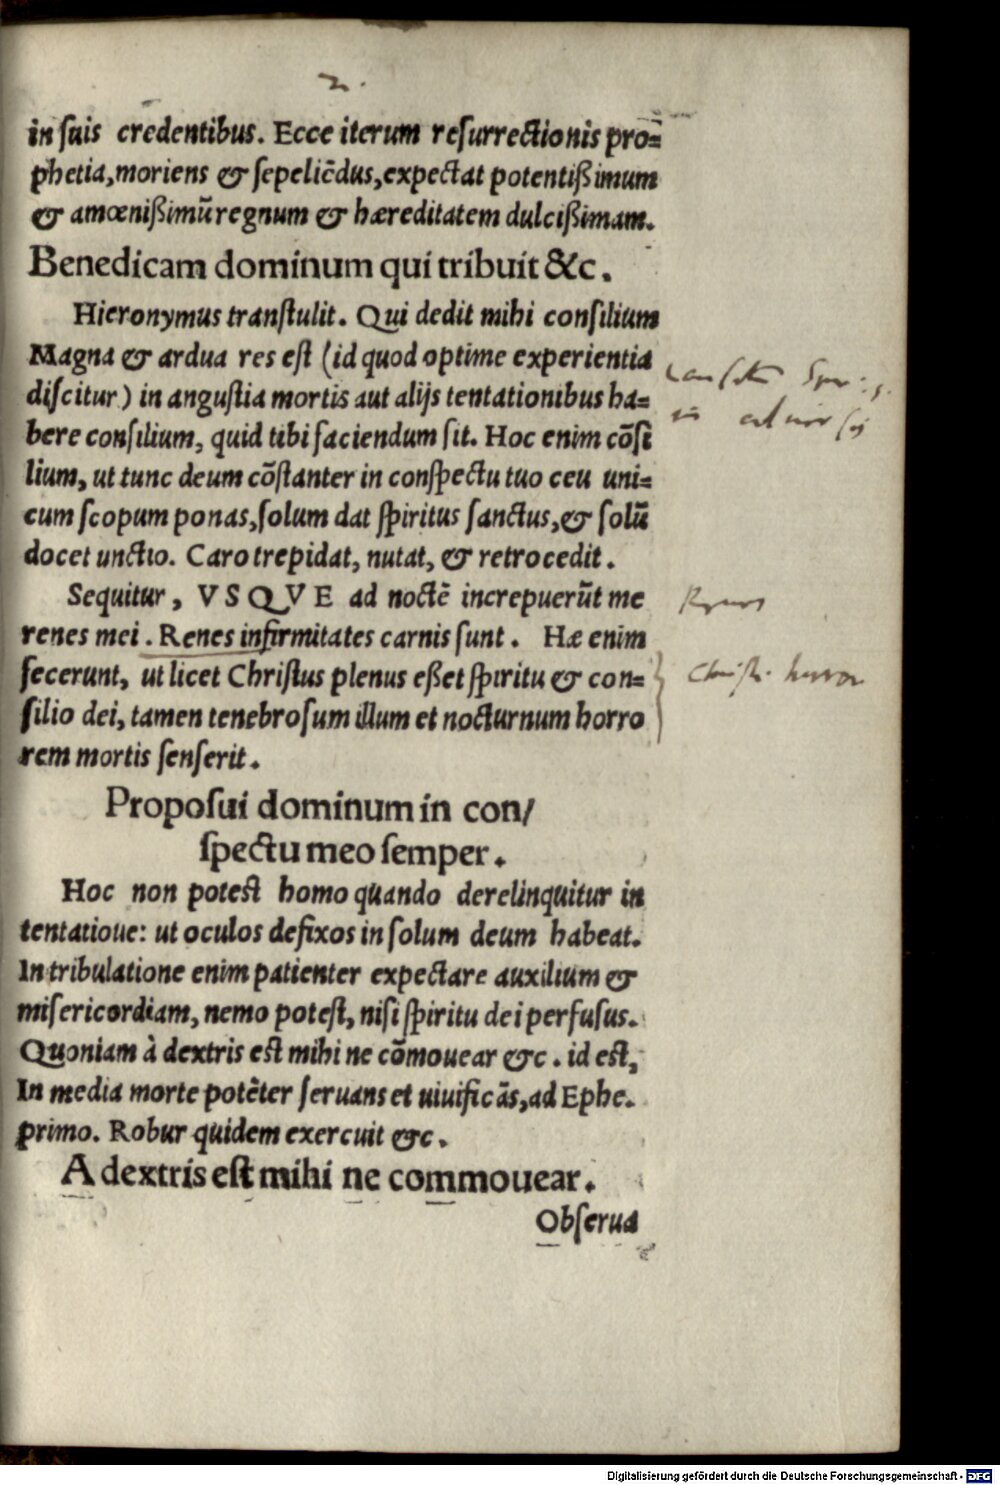 in suis credentibus. Ecce iterum resurrectionis pro=
phetia, moriens & sepeliēdus, expectat potentißimum
& amœnißimū regnum & hæreditatem dulcißimam.
Benedicam dominum qui tribuit &c.
Hieronymus transtulit. Qui dedit mihi consilium
Magna & ardua res est (id quod optime experientia
discitur) in angustia mortis aut alijs tentationibus ha=
bere consilium, quid tibi faciendum sit. Hoc enim cōsi
lium, ut tunc deum cōstanter in conspectu tuo ceu uni=
cum scopum ponas, solum dat spiritus sanctus, & solū
docet unctio. Caro trepidat, nutat, & retrocedit.
Sequitur, VSQVE ad noctē increpuerūt me
renes mei. Renes infirmitates carnis sunt. Hæ enim
fecerunt, ut licet Christus plenus eßet spiritu & con=
silio dei, tamen tenebrosum illum et nocturnum horro
rem mortis senserit.
Proposui dominum in con/
spectu meo semper.
Hoc non potest homo quando derelinquitur in
tentatioue: ut oculos defixos in solum deum habeat.
In tribulatione enim patienter expectare auxilium &
misericordiam, nemo potest, nisi spiritu dei perfusus.
Quoniam à dextris est mihi ne cōmouear &c. id est,
In media morte potēter seruans et uiuificās, ad Ephe.
primo. Robur quidem exercuit &c.
A dextris est mihi ne commouear.
Obserua
Renes
Christi horror
Digitalisierung gefördert durch die Deutsche Forschungsgemeinschaft - DFG